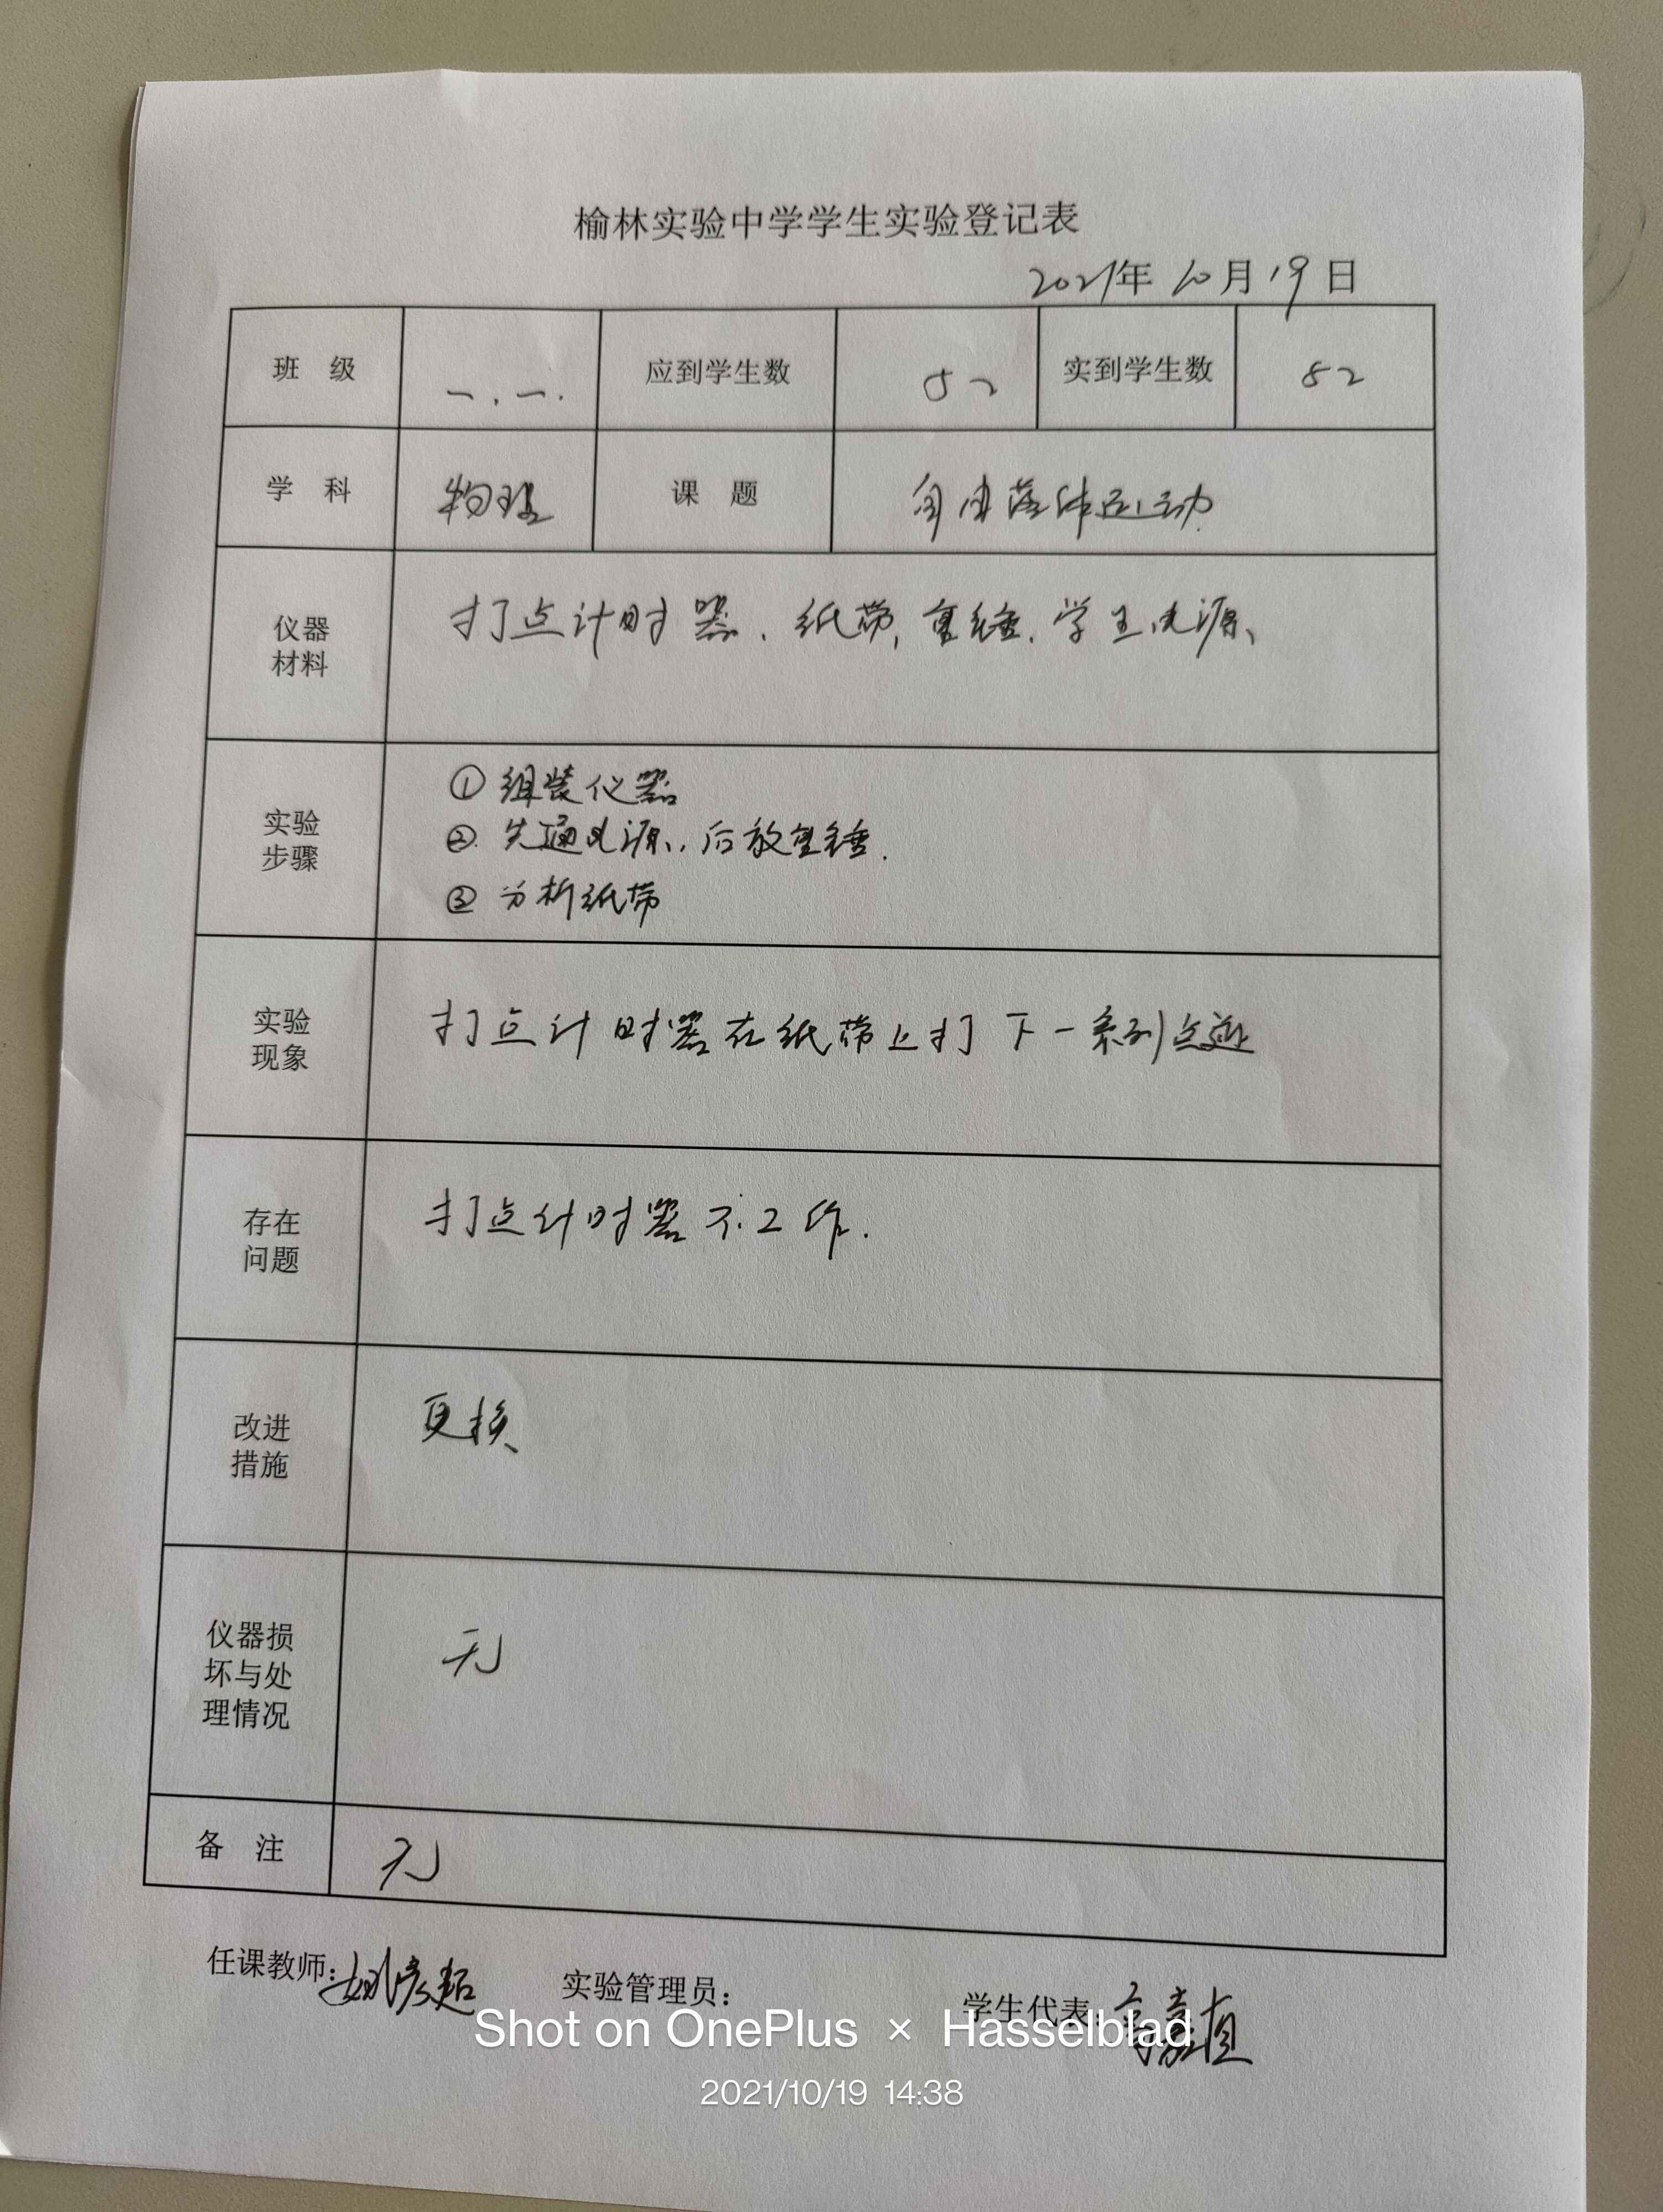 榆林实验中学学生实验登记表
2021年10月19日
班 级 一.一. 应到学生数 52 实到学生数 52
学 科 物理 课 题 自由落体运动
仪器
材料
打点计时器、纸带,重锤.学生电源、
实验
步骤
①组装仪器
②.先通电源,后放重锤.
③分析纸带
实验
现象
打点计时器在纸带上打下一系列点迹
存在
问题
打点计时器不工作.
改进
措施
更换
仪器损
坏与处
理情况
无
备 注 无
任课教师:姚彦超 实验管理员: 学生代表:
Shot on OnePlus × Hasselblad
2021/10/19 14:38